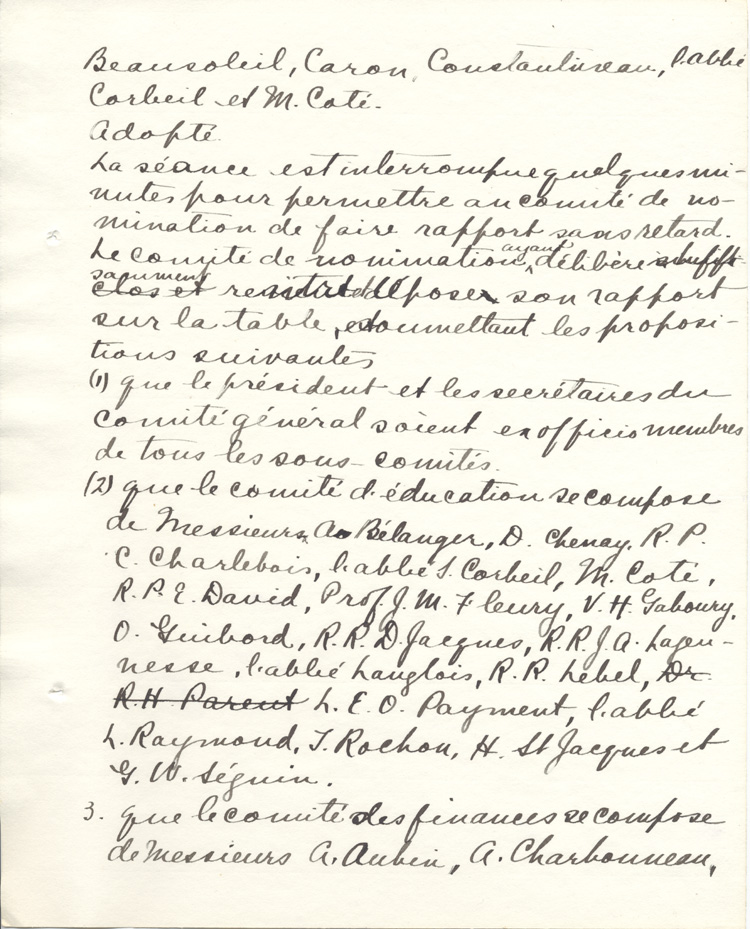 Beausoleil, Caron, Constantineau, l'abbé
Corbeil et M. Coté.
Adopté
La séance est interrompue quelques mi-
nutes pour permettre au comité de no-
mination de faire rapport sans retard.
Le comité de nomination, ayant délibéré suffi-
samment clos et dépose son rapport
sur la table, soumettant les proposi-
tions suivantes
(1) que le président et les secrétaires du
comité général soient ex officio membres
de tous les sous-comités.
(2) que le comité d'éducation se compose
de Messieurs A. Bélanger, D. Chenay, R. P.
C. Charlebois, l'abbé S. Corbeil, M. Coté,
R. P. E. David, Prof. J. M. Fleury, V. H. Gaboury,
O. Guibord, R. R. D. Jacques, R. R. J. A. Lajeu-
nesse, l'abbé Langlois, R. R. Lebel, Dr
R. H. Parent L. E. O. Payment, l'abbé
L. Raymond, T. Rochon, H. St Jacques et
G. W. Séguin.
3. que le comité des finances se compose
de Messieurs A. Aubin, A. Charbonneau,